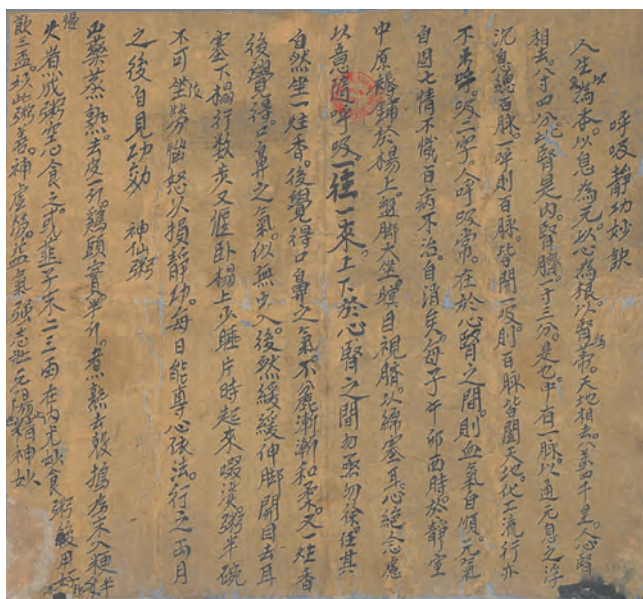 呼吸靜功妙訣
人生以氣為本。以息為元。以心為根。以腎為蒂。天地相去。八萬四千里。人心腎
相去。八寸四分。此腎是內。腎臍。一寸三分。是也。中有一脉。以通元息之浮
沉息總百脉。一呼則百脉。皆開一吸。則百脉皆闔。天地。化工流行。亦
不出呼。吸二字。人呼吸常。在於心腎之間。則血氣自順。元氣
自固七情不熾百病不治。自消矣。每子午卯酉時。於靜室
中原褥鋪於榻上。盤脚大坐。瞪目視臍。以綿塞耳。心絕念慮
以意隨呼吸。一往一來。上下於心腎之間勿亟勿徐任其
自然坐一炷香。後覺得口鼻之氣不麁漸漸和柔。又一炷香
後覺得。口鼻之氣。似無出入。後然緩緩伸脚開目去耳
塞下榻行數步又偃臥榻上少睡片時起來啜淡粥半碗
不可坐勞惱怒以損靜功。每日能專心依法。行之兩月
之後自見功効 神仙粥
山藥蒸熟。去皮一斤。鷄頭實。半斤。煮熟去殼搗為末入粳半
火煮成粥空心食之。或韭子末二三兩在內尤妙食粥後用好
飲三盃。妙此粥善。虛勞。益氣強志壯元陽精神妙